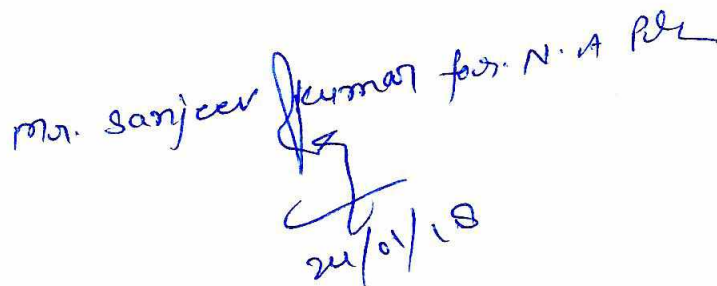 Mr. Sanjeev Kumar for. N. A Pil
24/01/18